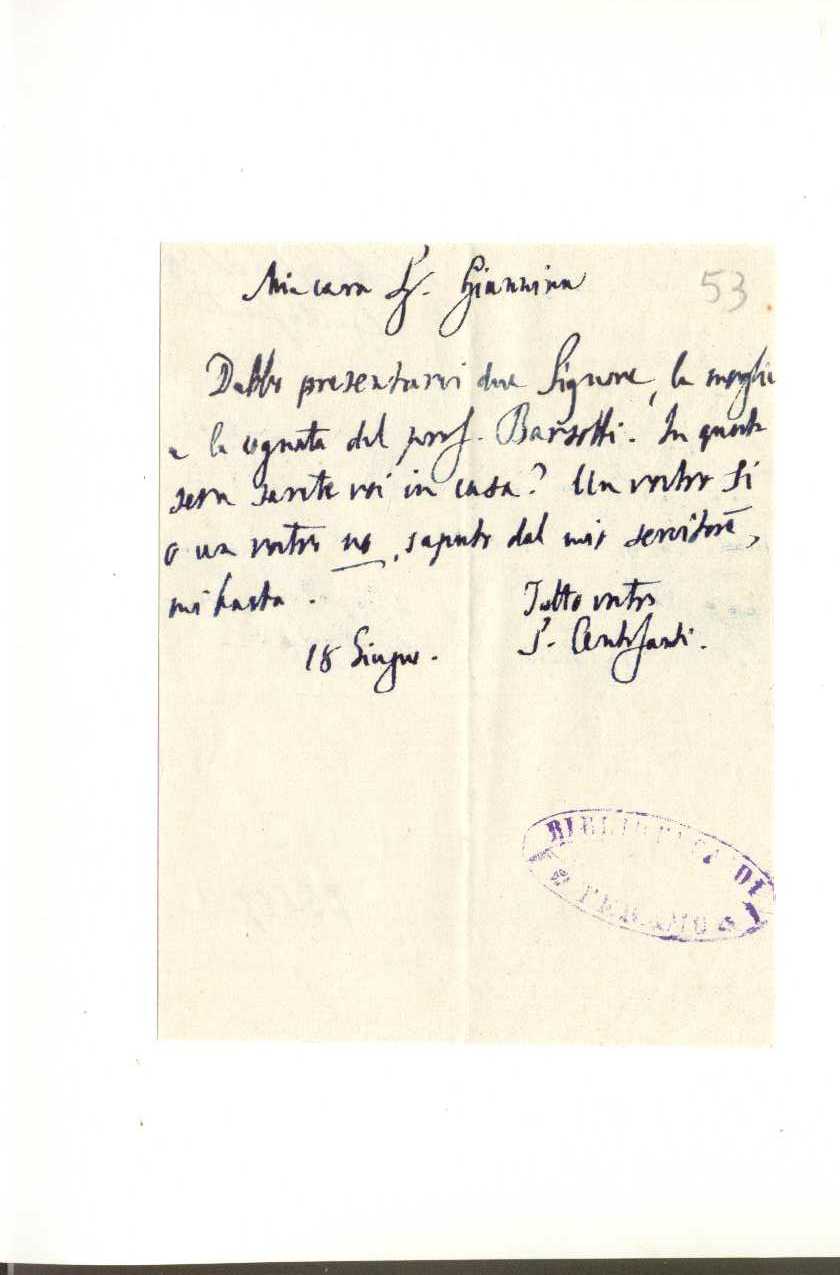 Mia cara Sigr. Giannina
53
Debbo presentarvi due Signore, la moglie
e la cognata del prof. Barsotti. In questa
sera sarete voi in casa? Un vostro si
o un vostro no, saputo dal mio servitore,
mi basta.
Tutto vostro
18 Giugno.
S. Centofanti.
BIBLIOTECA DI
TERAMO